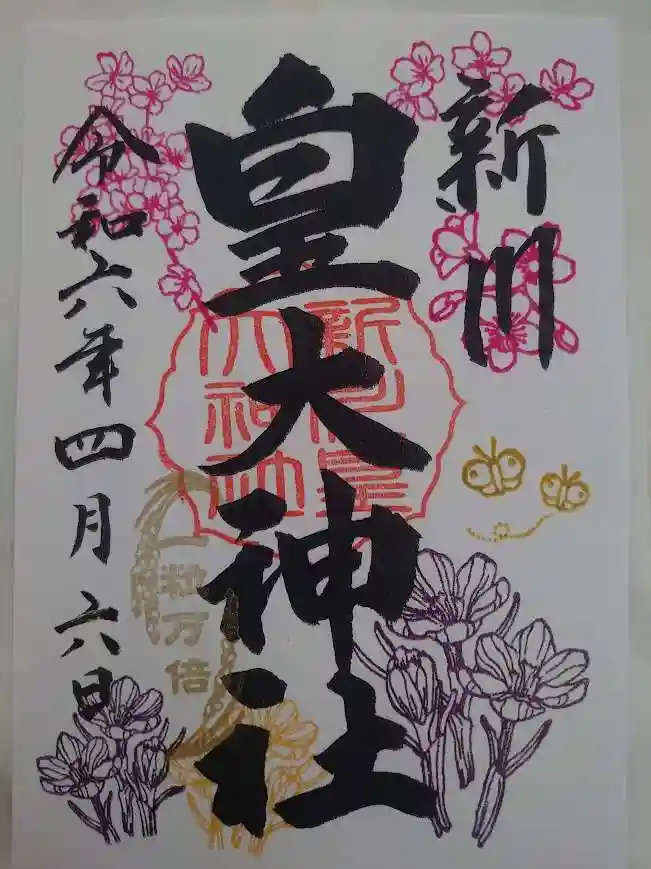 新川
皇大神社
新川皇
大神社
一粒万倍
令和六年四月六日